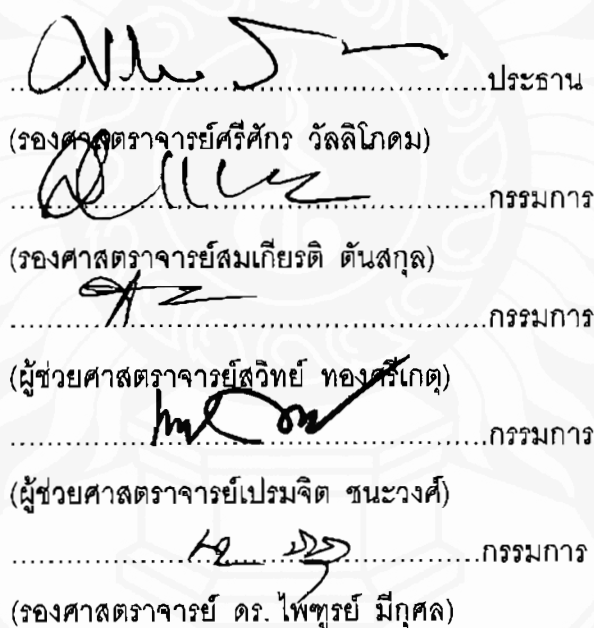 ประธาน
(รองศาสตราจารย์ศรีศักร วัลลิโภดม)
กรรมการ
(รองศาสตราจารย์สมเกียรติ ตันสกุล)
กรรมการ
(ผู้ช่วยศาสตราจารย์สุวิทย์ ทองศรีเกตุ)
กรรมการ
(ผู้ช่วยศาสตราจารย์เปรมจิต ชนะวงศ์)
กรรมการ
(รองศาสตราจารย์ ดร. ไพฑูรย์ มีกุศล)